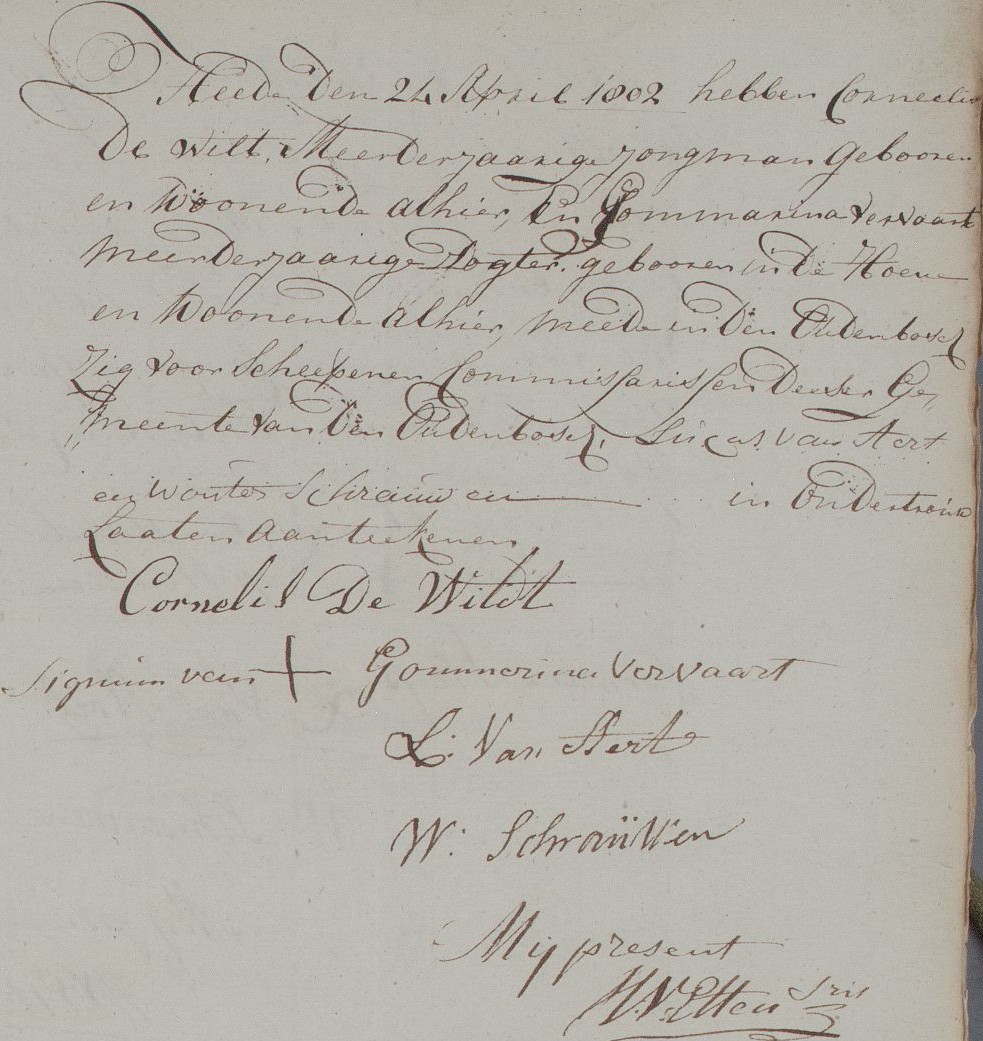 Heede Den 24 April 1802 hebben Corneelis
De Wilt, Meerderjaarige jongman Gebooren
en Woonende alhier, En Gommarina Vervaart
Meerderjaarige Dogter, gebooren in De Hoeve
en Woonende Alhier, meede in Den Oudenbosch
Zig voor Scheepenen Commissarissen Deeser Ge,
,meente van Den Oudenbosch, Lucas Van Aert
en Wouter Schrauwen in Ondertrouw
Laaten Aanteekenen
Cornelis De Wildt
Signum van + Gommerina Vervaart
L: Van Aert
W: Schrauwen
Mij present
H. V. Etten Sris